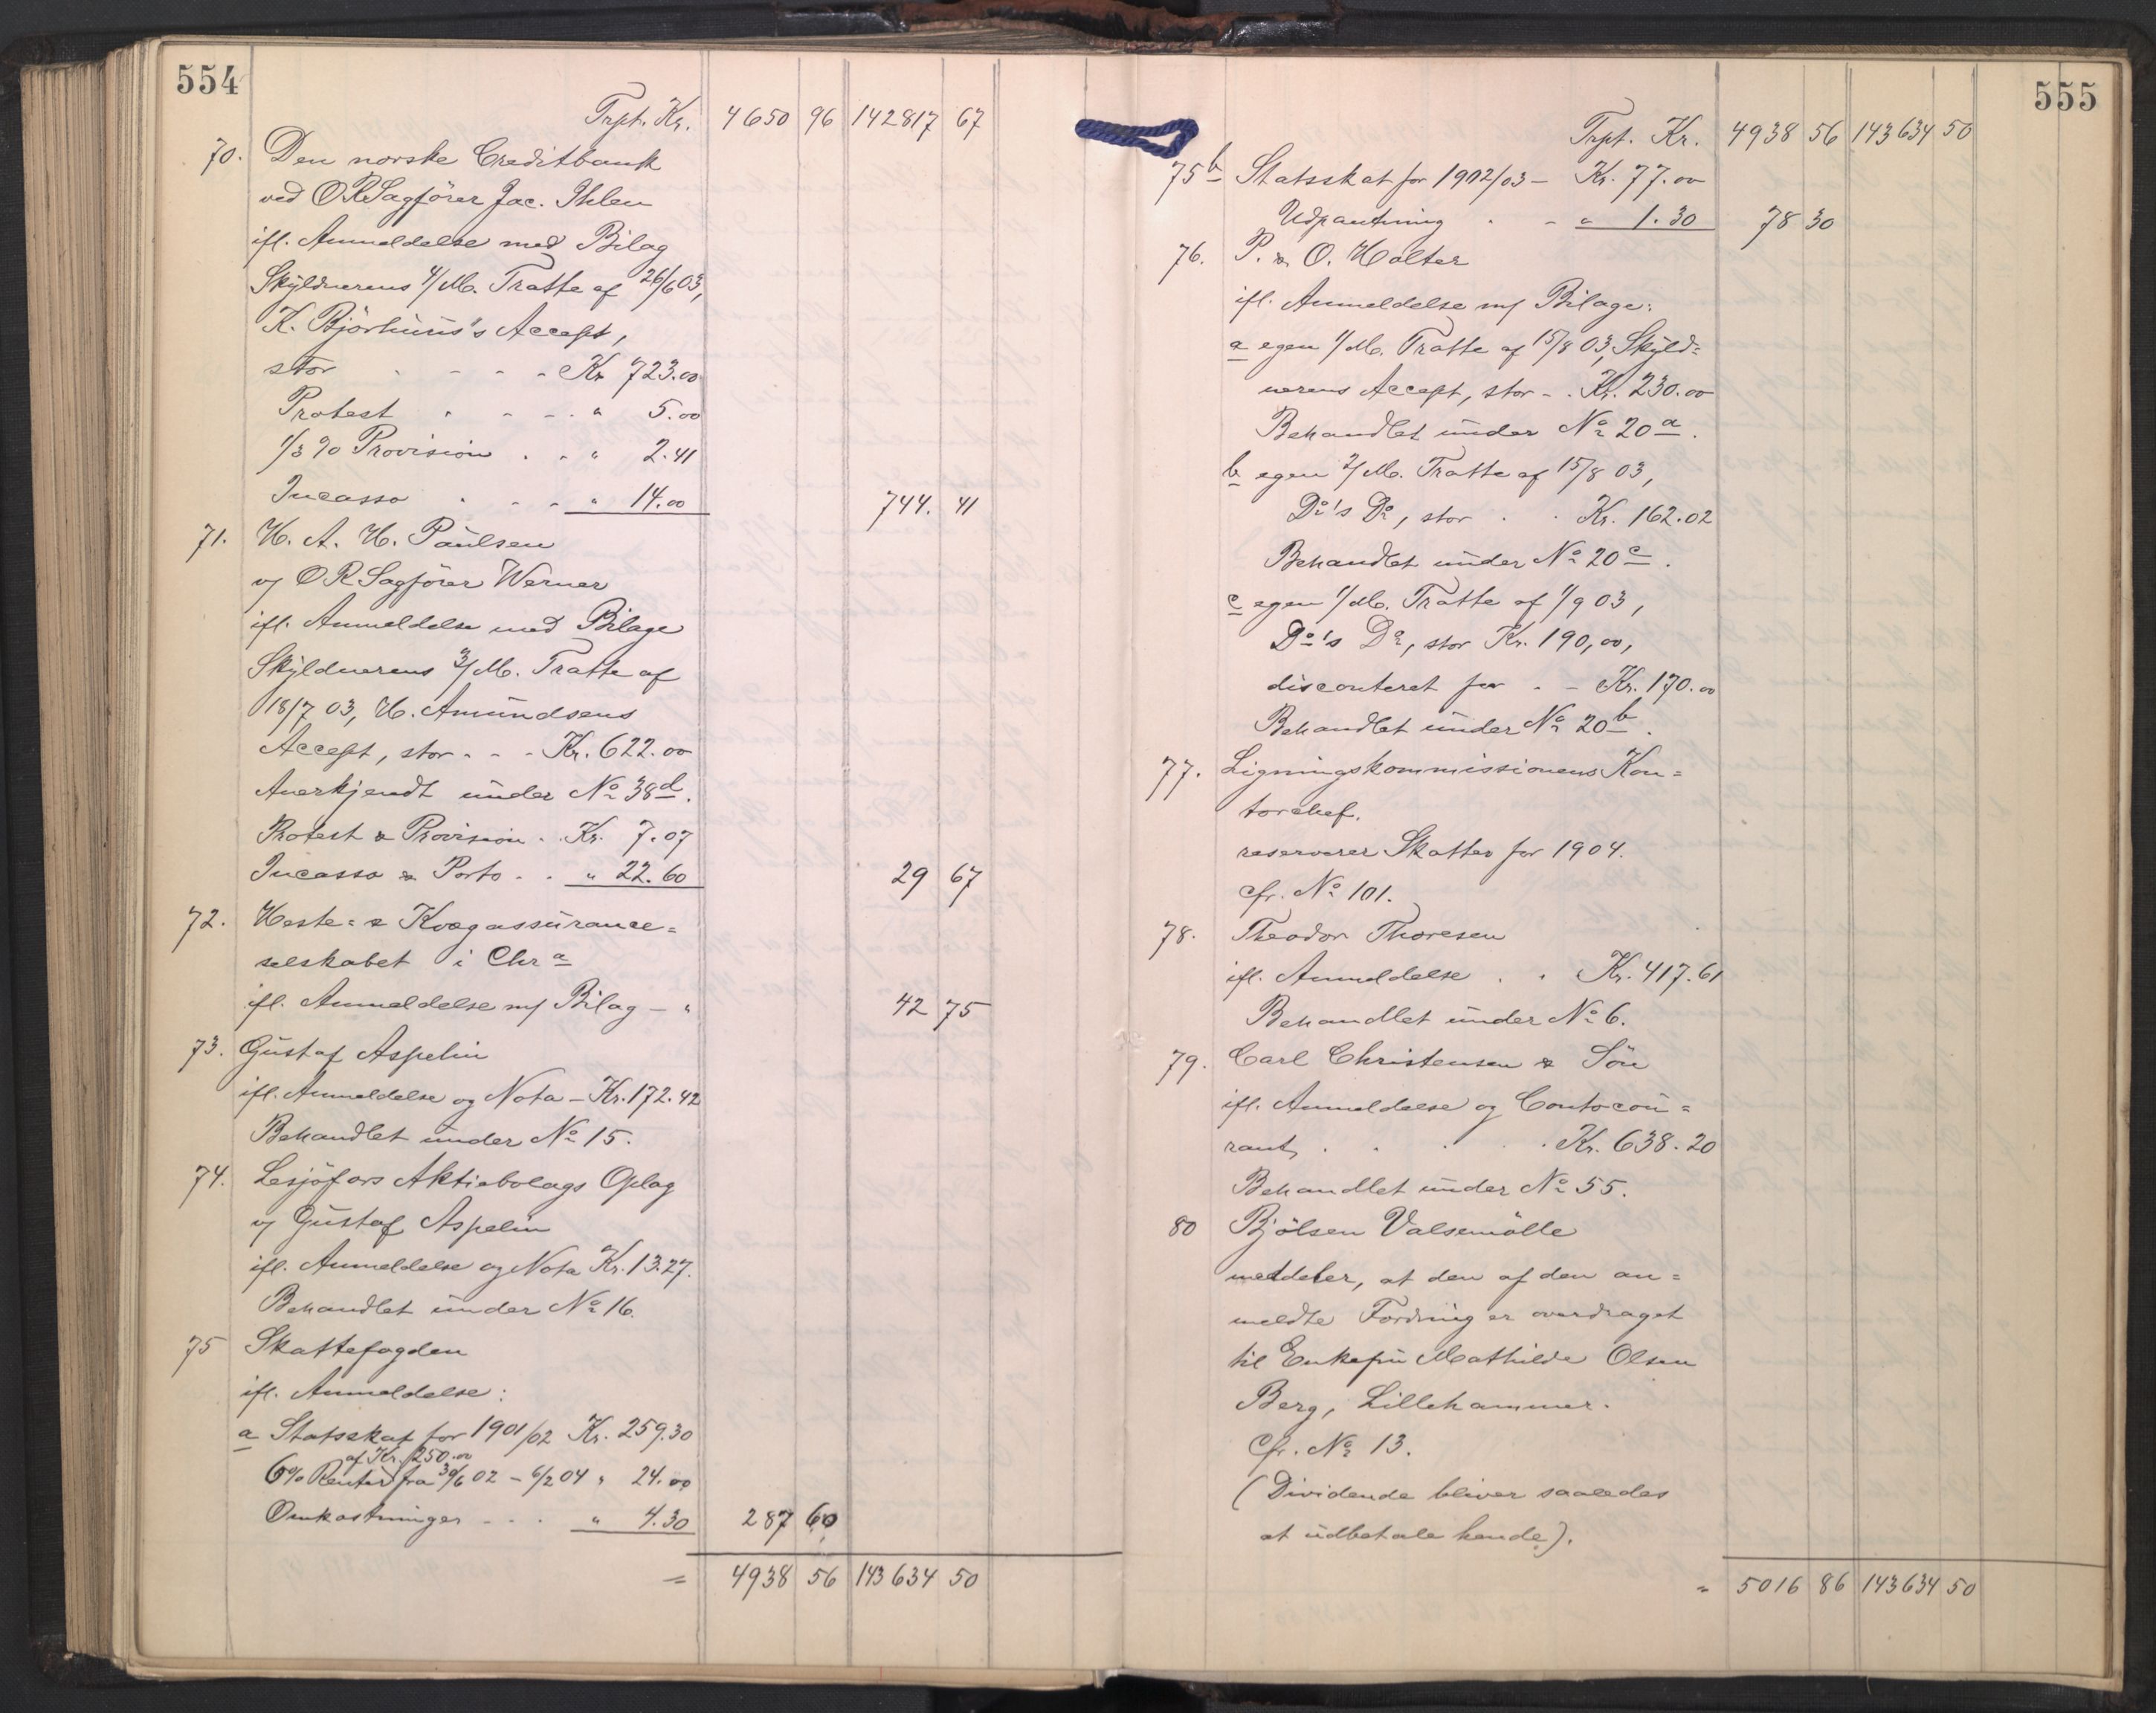 554
Trpt. Kr. 4650 96 142817 67
70. Den norske Creditbank
ved O.R.Sagfører Jac. Ihlen
ifl. Anmeldelse med Bilag
Skyldnerens 4/M. Tratte af 26/6 03,
K. Björhuus's Accept,
stor - - - - Kr 723.00
Protest - - - - " 5.00
1/3 % Provision . - " 2.41
Incasso - - - " 14.00 744. 41
71. H. A. H. Paulsen
v/ O R Sagfører Werner
ifl. Anmeldelse med Bilage
Skyldnerens 3/M. Tratte af
18/7 03, H. Amundsens
Accept, stor - - - Kr. 622.00
Anerkjendt under No 38d.
Protest & Provision . . Kr. 7.07
Incasso & Porto - . " 22.60 29 67
72. Heste- & Kvægassurance=
selskabet i Chra
ifl. Anmeldelse m/ Bilag - " 42 75
73. Gustaf Aspelin
ifl. Anmeldelse og Nota - Kr. 172.42
Behandlet under No 15.
74. Lesjöfors Aktiebolags Oplag
v/ Gustaf Aspelin
ifl. Anmeldelse og Nota Kr. 13.27.
Behandlet under No 16.
75 Skattefogden
ifl. Anmeldelse:
a Statsskat for 1901/02 Kr. 259.30
af Kr. 250.00
6% Renter fra 30/6 02 - 6/2 04 " 24.00
Omkostninger - - - " 4.30 287 60
= 4938 56 143634 50
555
Trpt. Kr. 4938 56 143634 50
75b Statsskat for 1902/03 - Kr. 77.00
Udpantning . - " 1.30 78 30
76. P. & O. Holter
ifl. Anmeldelse m/ Bilage:
a egen 1/M. Tratte af 15/8 03, Skyld=
nerens Accept, stor - . Kr. 230.00
Behandlet under No 20a.
b egen 2/M. Tratte af 15/8 03,
Do's Do, stor . . Kr. 162.02
Behandlet under No 20c.
c egen 1/M. Tratte af 1/9 03,
Do's Do, stor Kr. 190,00,
disconteret for . - Kr. 170.00
Behandlet under No 20b.
77. Ligningskommissionens Kon=
torchef.
reserverer Skatten for 1904.
cfr. No 101.
78. Theodor Thoresen
ifl. Anmeldelse . . Kr. 417.61
Behandlet under No 6.
79. Carl Christensen & Sön
ifl. Anmeldelse og Contocou=
rant, . . . . Kr. 638.20
Behandlet under No 55.
80 Bjölsen Valsemölle
meddeler, at den af den an=
meldte Fordring er overdraget
til Enkefru Mathilde Olsen
Berg, Lillehammer.
Cfr. No 13.
(Dividende bliver saaledes
at udbetale hende).
= 5016 86 143634 50